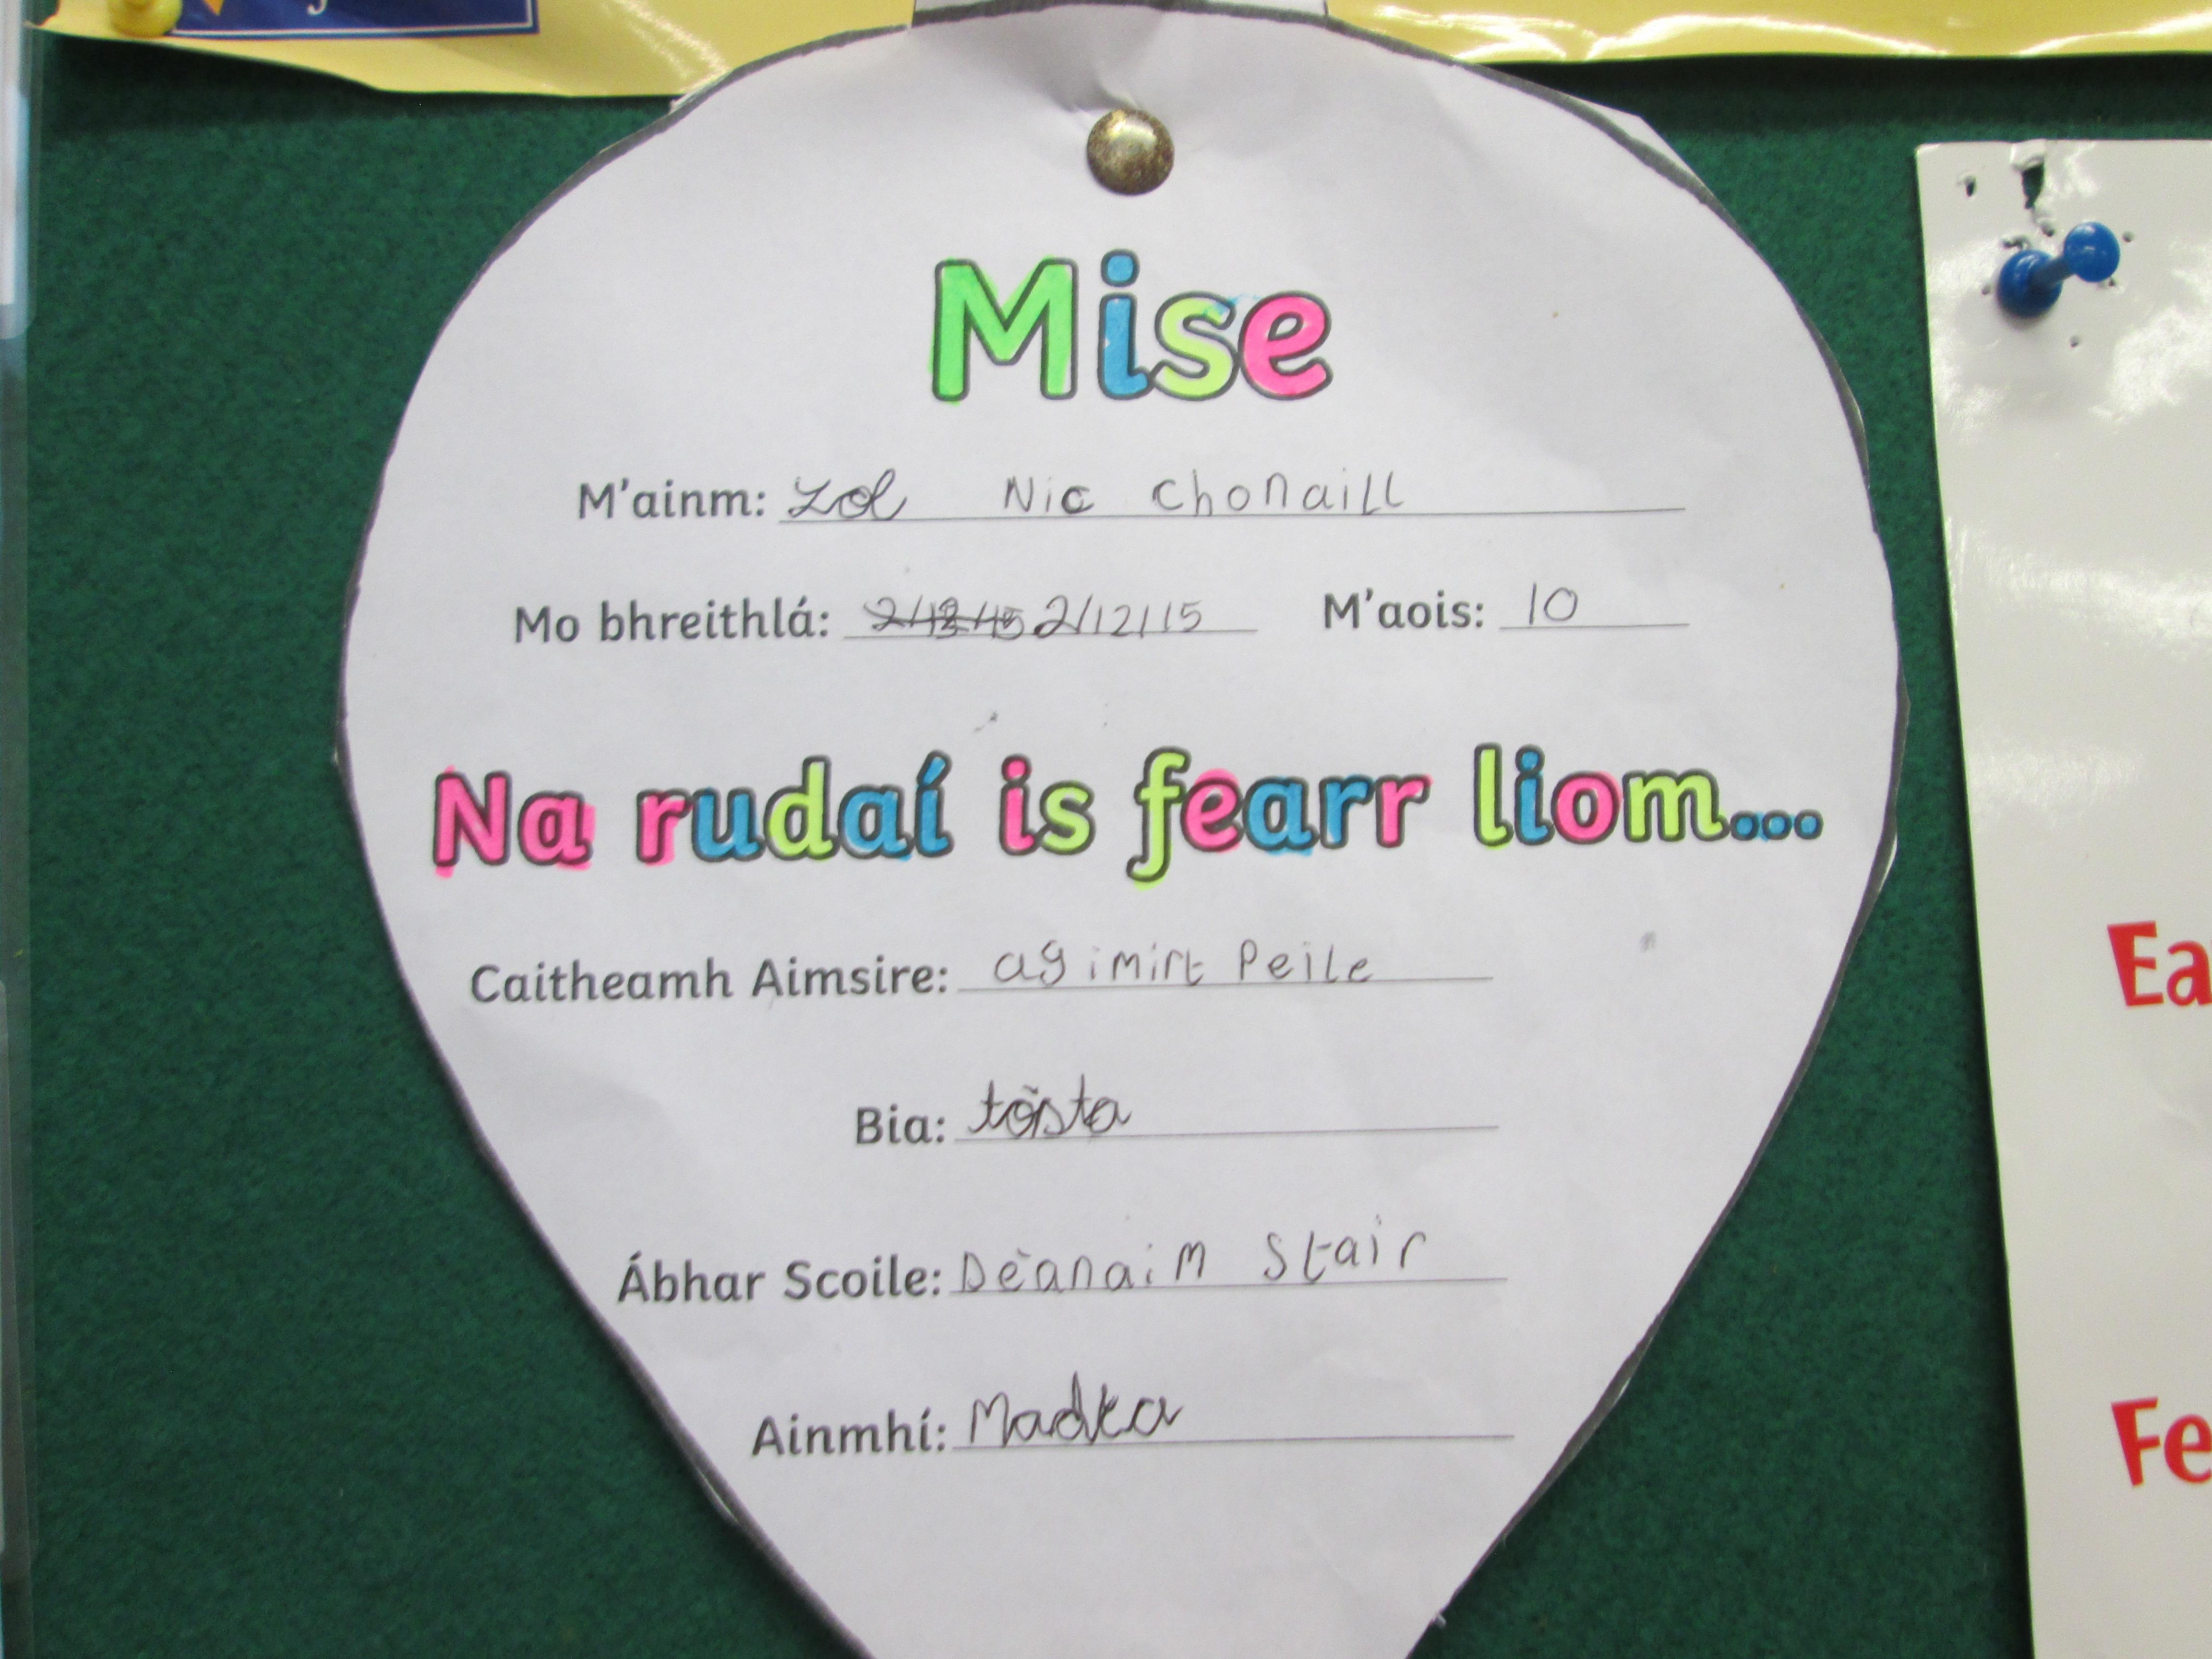 Mise
M'ainm: Nic Chonaill
Mo bhreithlá: 2/12/15 M'aois: 10
Na rudaí is fearr liom...
Caitheamh Aimsire: ag imirt Peile
Bia: tósta
Ábhar Scoile: Dèanaim Stair
Ainmhí: Madra
Ea
Fe